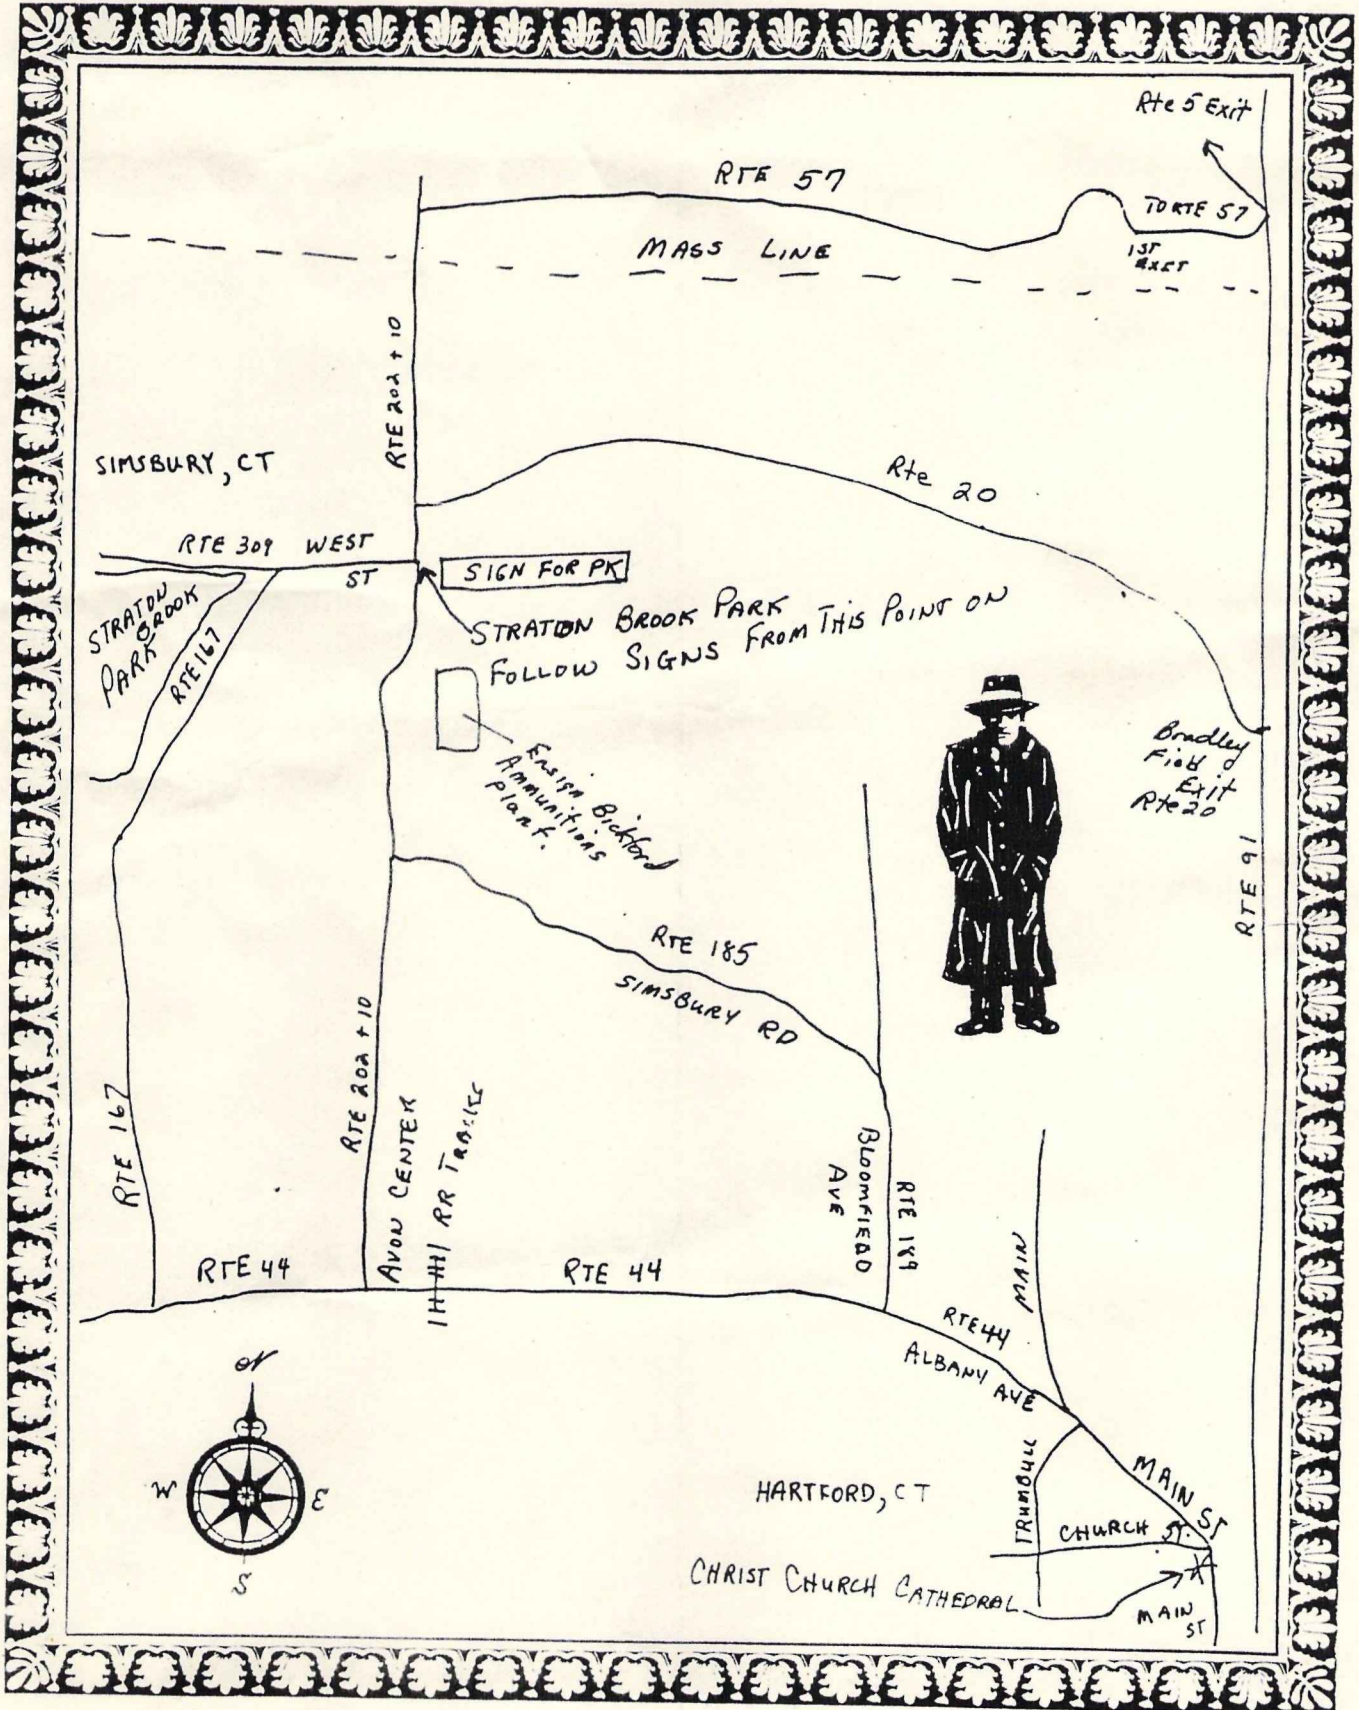 Rte 5 Exit
RTE 57
TO RTE 57
1ST
EXET
MASS LINE
RTE 202 + 10
SIMSBURY, CT
Rte 20
RTE 309 WEST
ST
SIGN FOR PK
STRATON
BROOK
PARK
RTE 167
STRATON BROOK PARK
FOLLOW SIGNS FROM THIS POINT ON
Ensign Bickford
Ammunitions
plant.
Bradley
Field
Exit
Rte 20
RTE 91
RTE 185
SIMSBURY RD
RTE 202 + 10
AVON CENTER
RR TRACKS
RTE 167
BLOOMFIEDD
AVE
RTE 189
MAIN
RTE 44
RTE 44
RTE 44
ALBANY AVE
N
W
E
S
HARTFORD, CT
TRUMBULL
MAIN ST
CHURCH ST.
CHRIST CHURCH CATHEDRAL
MAIN
ST